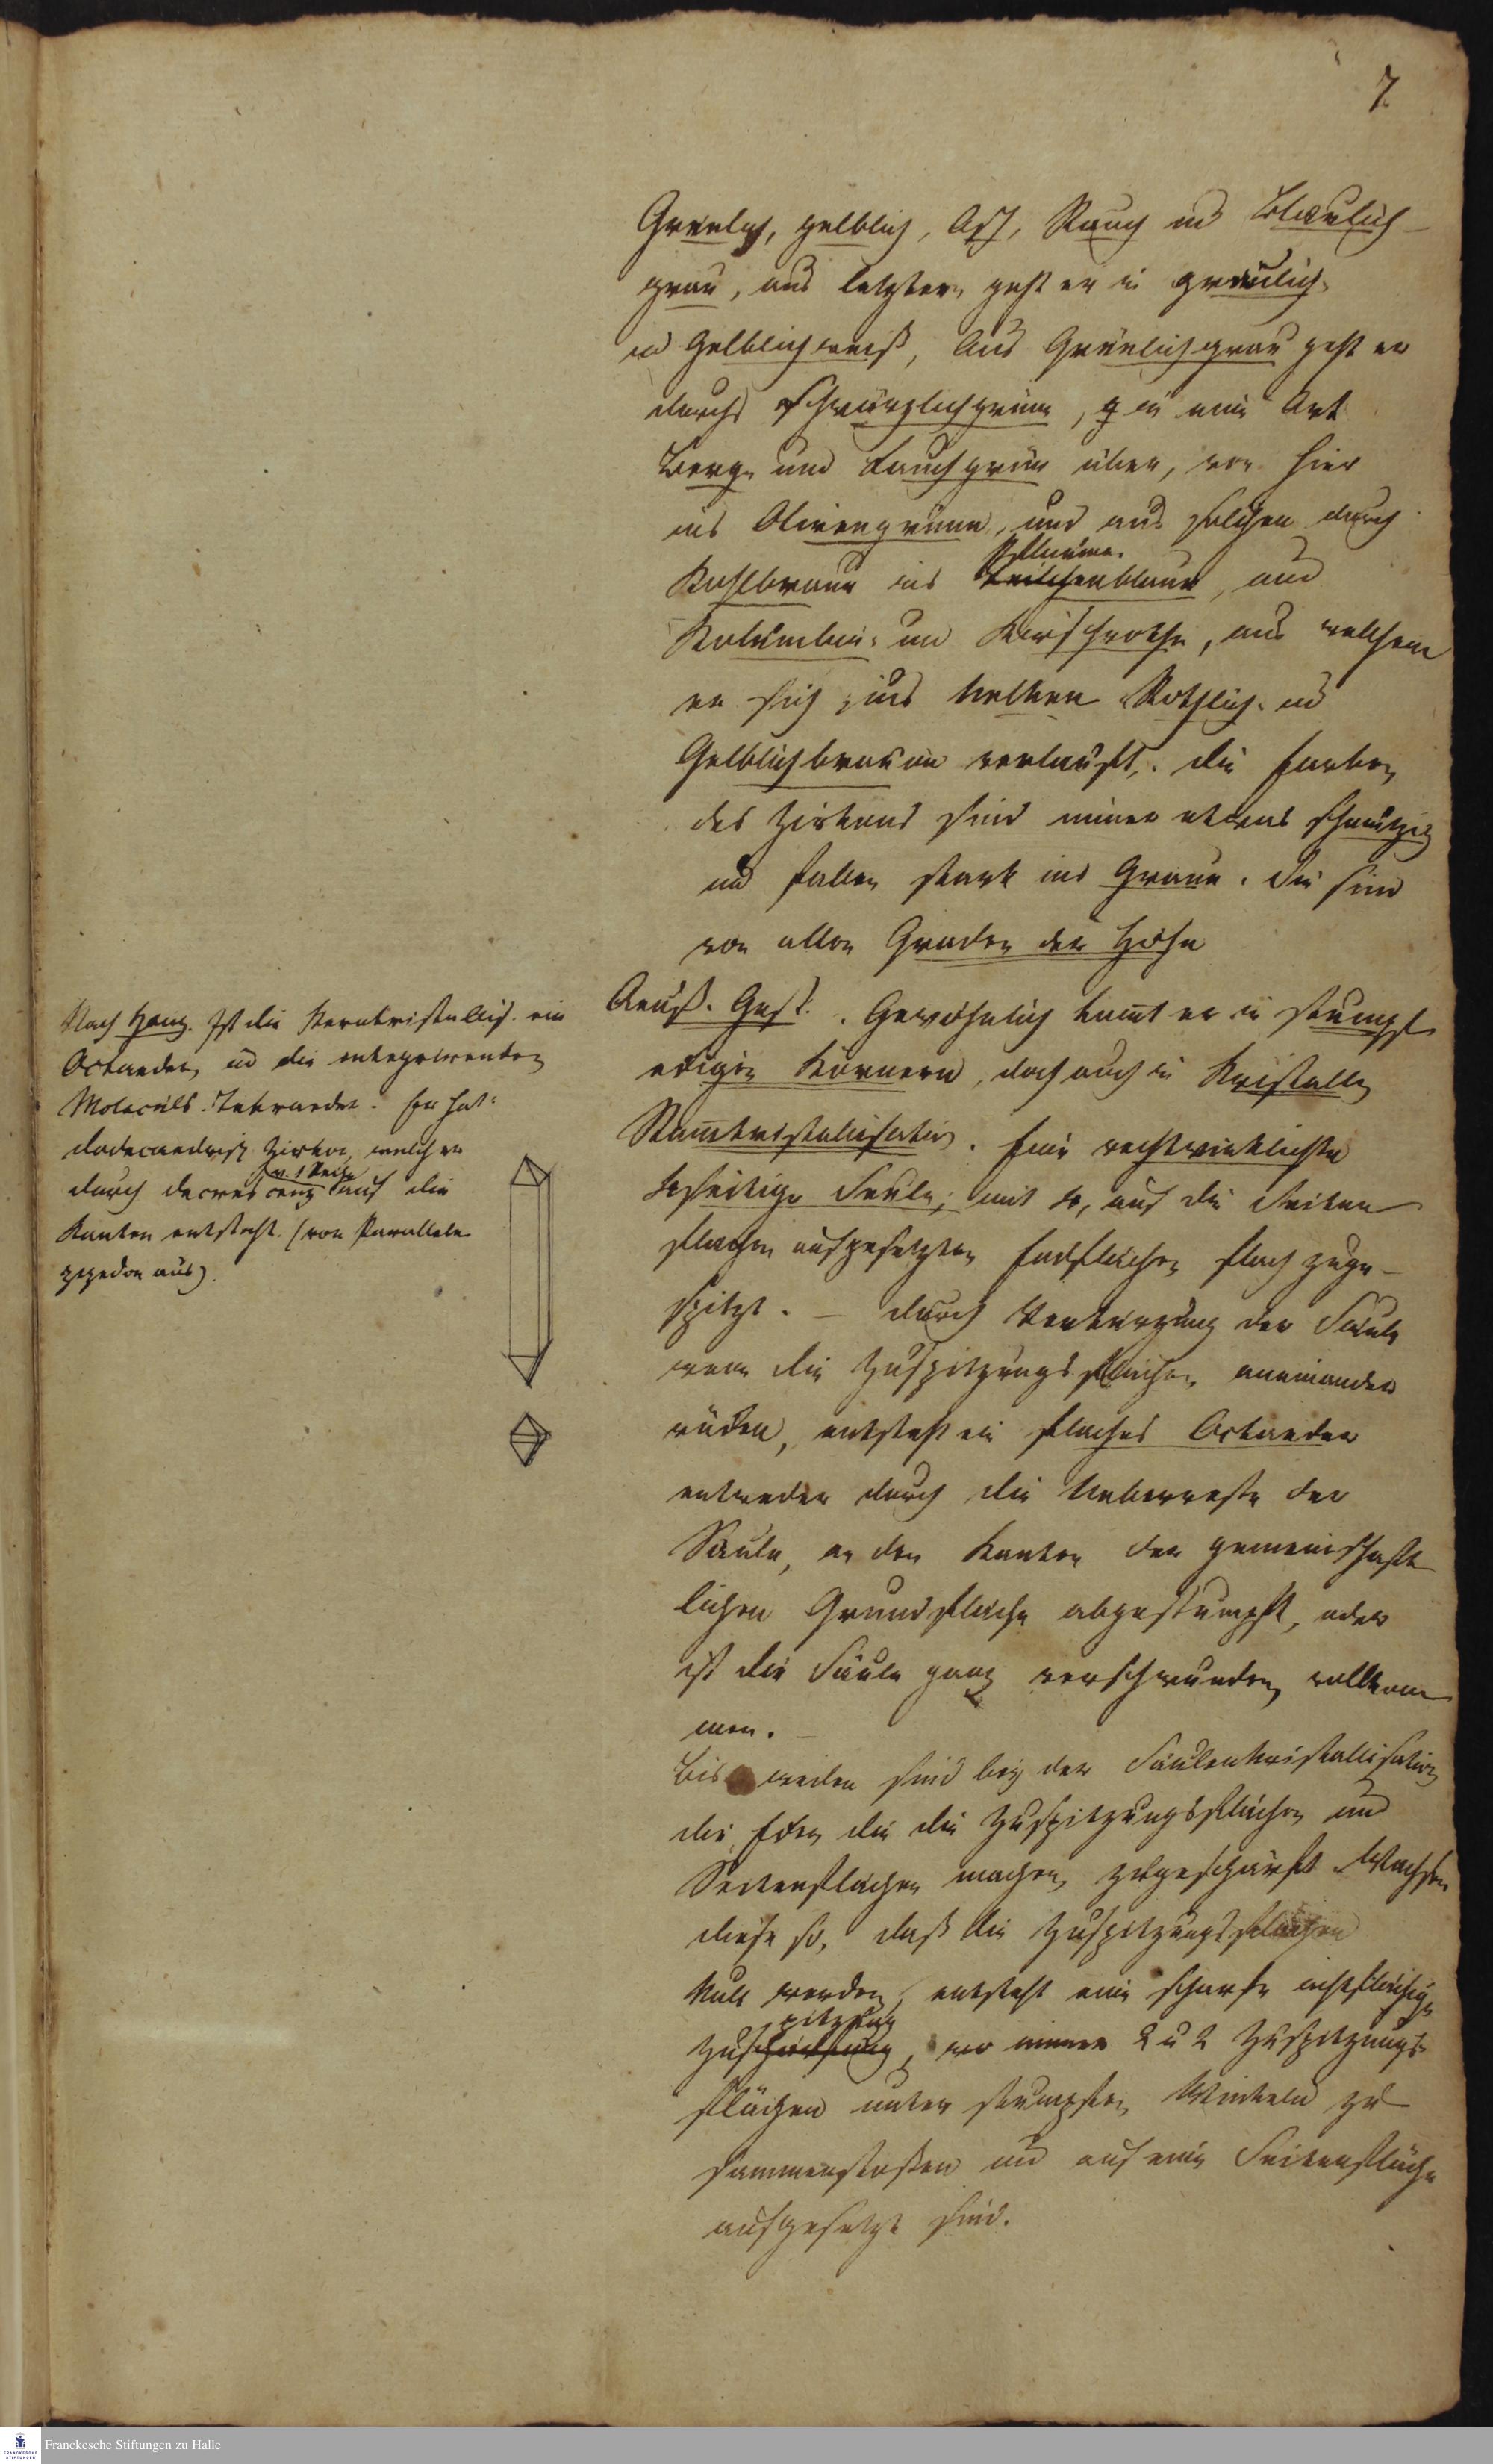 7.
Grünlich, gelblich, Asch, Rauch und Bläulich-
grau, aus letztern geht er in graulich-
und Gelblichweiß, Aus Grünlichgrau geht er
durchs Schwärzlichgrüne, in eine Art
Berg- und Lauchgrün über, von hier
ins Olivengrüne, und aus solchen durch
Pflaumen-
Kohlbraun ins Veilchenblaue, und
Kolumbin- und Kirschrothe, aus welchem
er sich ins Nelken Röthlich- und
Gelblichbraune verläuft. die Farben
des Zirkons sind immer etwas schmutzig
und fallen stark ins Graue. Sie sind
von allen Graden der Höhe
Aeuß. Gest. Gewöhnlich kommt er in stumpf-
eckigen Körnern, doch auch in Kristallen
Stammkristallisation. Eine rechtwinklichte
4seitige Seule, mit 4, auf die Seiten
flächen aufgesetzten Endflächen flach zuge-
spitzt. — durch Verkürzung der Säule
wenn die Zuspitzungsflächen aneinander
rücken, entsteht ein flaches Octaeder
entweder durch die Ueberreste der
Säule, an den Kanten der gemeinschaft-
lichen Grundfläche abgestumpft, oder
ist die Säule ganz verschwunden, vollkom-
men. —
Bisweilen sind bey der Säulenkristallisation
die Ecken die die Zuspitzungsflächen und
Seitenflächen machen, zugeschärft. Wachsen
diese so, daß die Zuspitzungsflächen
Null werden, entsteht eine scharfe achtflächige
spitzung
Zuschärfung, wo immer 2 u 2 Zuspitzungs-
flächen unter stumpfen Winkeln zu-
sammenstoßen und auf eine Seitenfläche
aufgesetzt sind.
Nach Hauy. Ist die Kernkristallis. ein
Octaeder, und die integrirenden
Moleculs. Tetraeder. Er hat
dodecaedrisch Zirkon, welcher
v. 1 Reihe
durch decrescenz auf die
Kanten entsteht. (von Parallele
pipedon aus).
Franckesche Stiftungen zu Halle